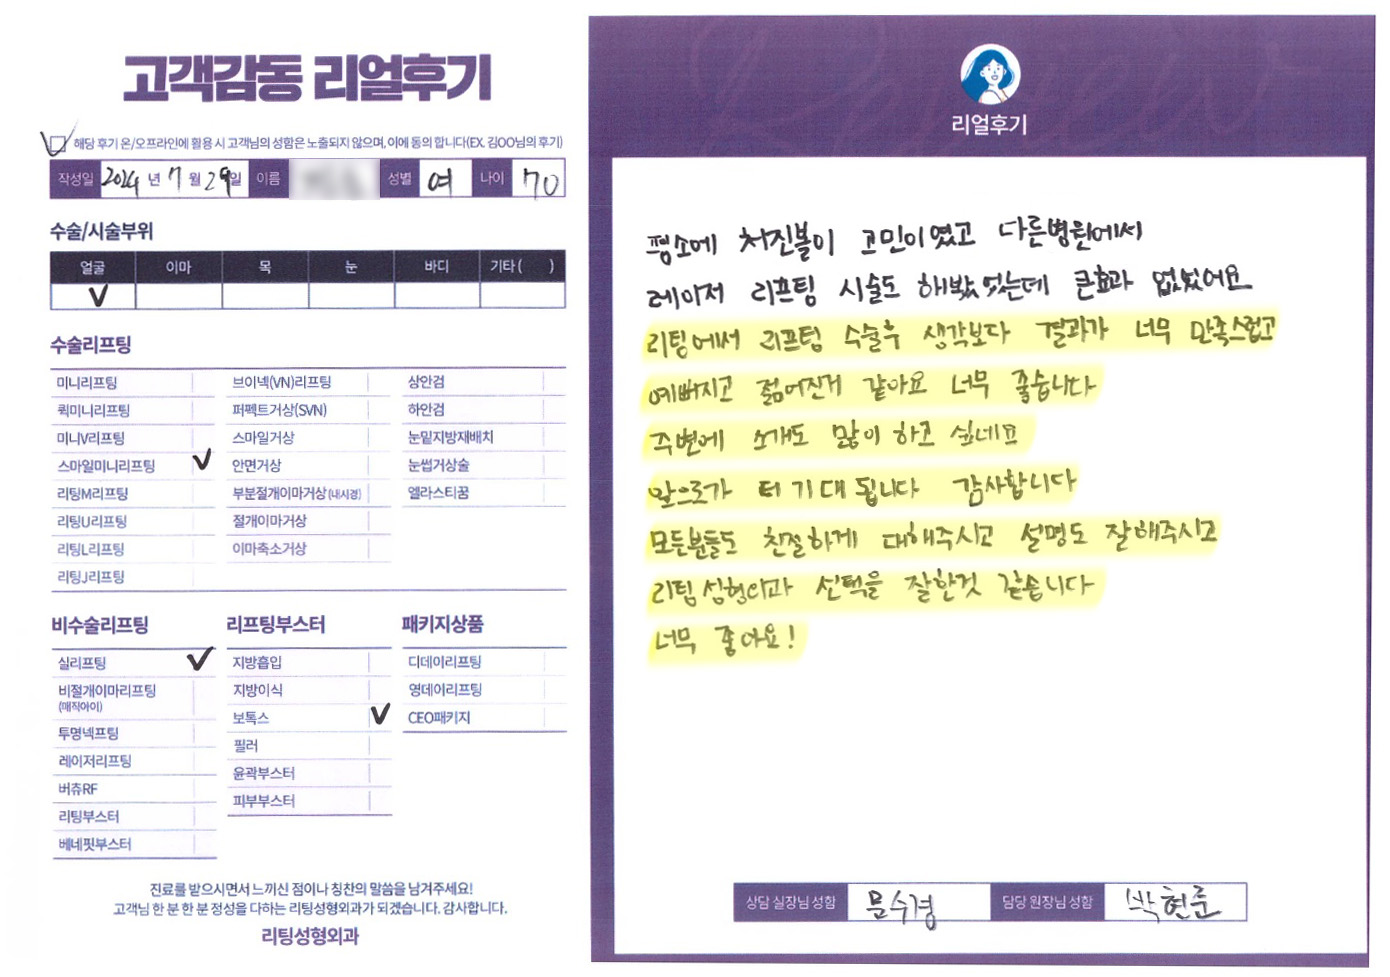 고객감동 리얼후기
해당 후기 온/오프라인에 활용 시 고객님의 성함은 노출되지 않으며, 이에 동의 합니다(EX. 김OO님의 후기)
작성일 2024 년 7 월 29일 이름 성별 여 나이 70
수술/시술부위
얼굴 이마 목 눈 바디 기타 ( )
수술리프팅
미니리프팅
퀵미니리프팅
미니V리프팅
스마일미니리프팅
리팅M리프팅
리팅U리프팅
리팅L리프팅
리팅J리프팅
브이넥(VN)리프팅
퍼펙트거상(SVN)
스마일거상
안면거상
부분절개이마거상(내시경)
절개이마거상
이마축소거상
상안검
하안검
눈밑지방재배치
눈썹거상술
엘라스티꿈
비수술리프팅
실리프팅
비절개이마리프팅
(매직아이)
투명넥프팅
레이저리프팅
버츄RF
리팅부스터
베네핏부스터
리프팅부스터
지방흡입
지방이식
보톡스
필러
윤곽부스터
피부부스터
패키지상품
디데이리프팅
영데이리프팅
CEO패키지
진료를 받으시면서 느끼신 점이나 칭찬의 말씀을 남겨주세요!
고객님 한 분 한 분 정성을 다하는 리팅성형외과가 되겠습니다. 감사합니다.
리팅성형외과
리얼후기
평소에 처진볼이 고민이였고 다른병원에서
레이저 리프팅 시술도 해봤었는데 큰효과 없었어요
리팅에서 리프팅 수술후 생각보다 결과가 너무 만족스럽고
예뻐지고 젊어진거 같아요 너무 좋습니다
주변에 소개도 많이 하고 싶네요
앞으로가 더 기대 됩니다 감사합니다
모든분들도 친절하게 대해주시고 설명도 잘해주시고
리팅성형외과 선택을 잘한것 같습니다
너무 좋아요!
상담 실장님 성함 문수경 담당 원장님 성함 박현준